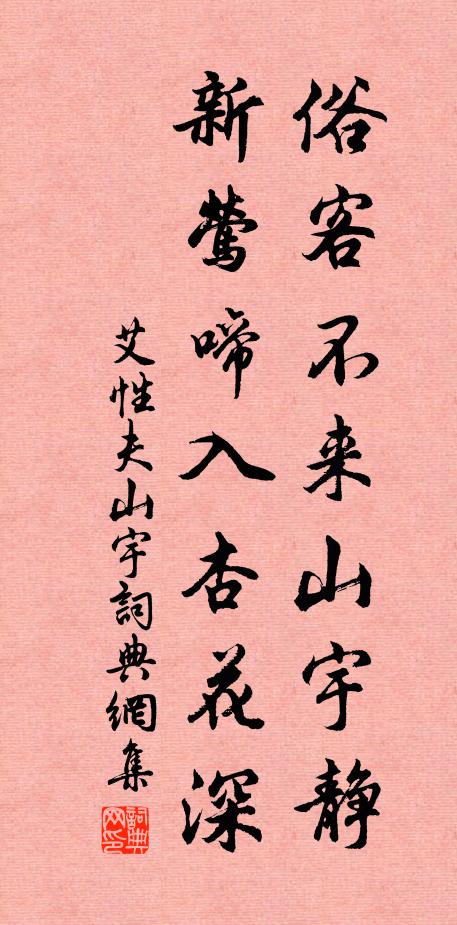 俗客不来山宇静
新莺啼入杏花深
艾性夫山宇詞典網集
詞典网印